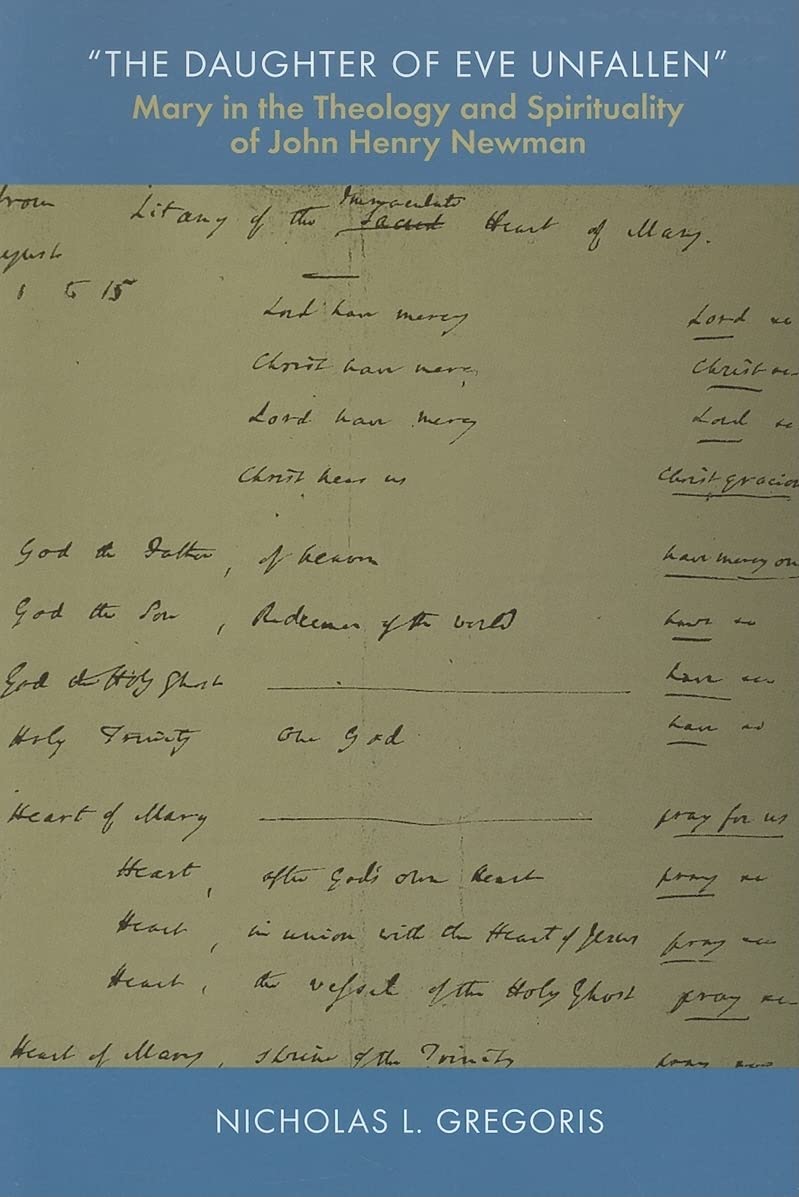 “THE DAUGHTER OF EVE UNFALLEN”
Mary in the Theology and Spirituality
of John Henry Newman
from Litany of the sacred Immaculate Heart of Mary.
1 to 15
Lord have mercy Lord &c
Christ have mercy Christ &c
Lord have mercy Lord &c
Christ hear us Christ gracio
God the Father, of heaven have mercy on
God the Son, Redeemer of the world have &c
God the Holy Ghost have &c
Holy Trinity One God have &c
Heart of Mary pray for us
Heart, after God's own heart pray &c
Heart, in union with the Heart of Jesus pray &c
Heart, the vessel of the Holy Ghost pray &c
Heart of Mary, shrine of the Trinity pray
NICHOLAS L. GREGORIS